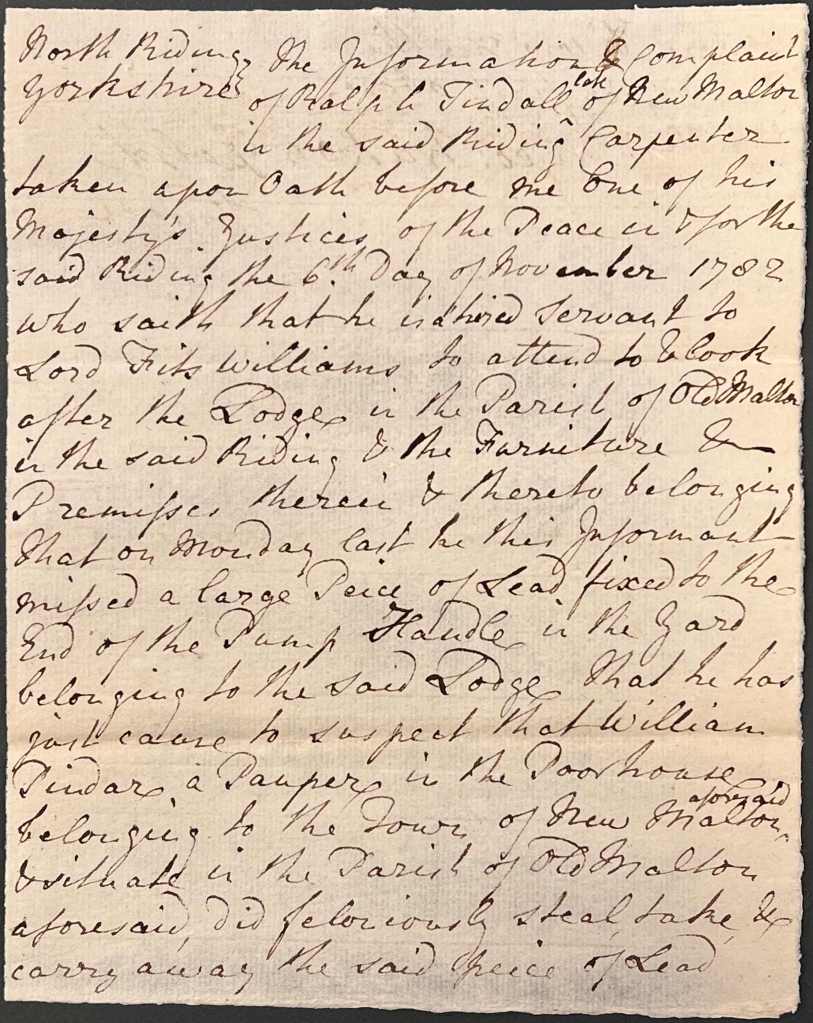 North Riding } The Information & Complaint
Yorkshire } of Ralph Tindall late of New Malton
in the said Riding Carpenter
taken upon Oath before me One of his
Majesty's Justices of the Peace in & for the
said Riding the 6th. Day of November 1782
who saith that he is a hired Servant to
Lord Fits Williams to attend to & look
after the Lodge in the Parish of Old Malton
in the said Riding & the Furniture &
Premisses therein & thereto belonging
that on Monday last he this Informant
missed a large Peice of Lead fixed to the
End of the Pump Handle in the Yard
belonging to the said Lodge that he has
just cause to suspect that William
Pindar a Pauper in the Poorhouse
belonging to the Town of New Malton aforesaid
& situate in the Parish of Old Malton
aforesaid, did feloniously steal, take, &
carry away the said peice of Lead